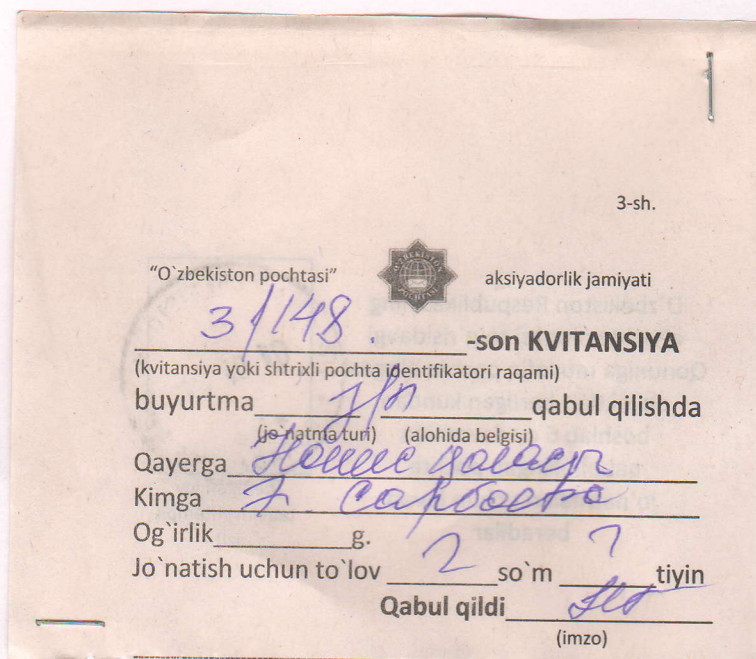 3-sh.
"O`zbekiston pochtasi" aksiyadorlik jamiyati
3/148. -son KVITANSIYA
(kvitansiya yoki shtrixli pochta identifikatori raqami)
buyurtma qabul qilishda
(jo`natma turi) (alohida belgisi)
Qayerga
Kimga
Og`irlik g.
Jo`natish uchun to`lov 2 so`m tiyin
Qabul qildi
(imzo)